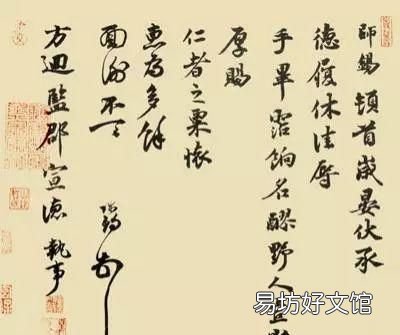 師錫頓首歲晏伏承
德履休佳辱
手畢霑餉名醪野人豈
厚賜
仁者之粟懷
惠為多餘
面謝不一
方迴監郡宣德執事
易坊好文馆